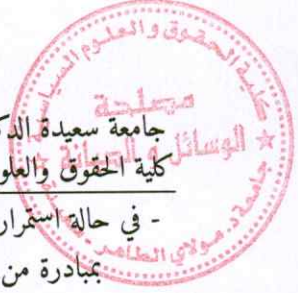 كلية الحقوق والعلوم السياسية
مصلحة
الوسائل والصيانة
جامعة د. مولاي الطاهر
جامعة سعيدة الدك
كلية الحقوق والعلو
- في حالة استمرار
بمبادرة من